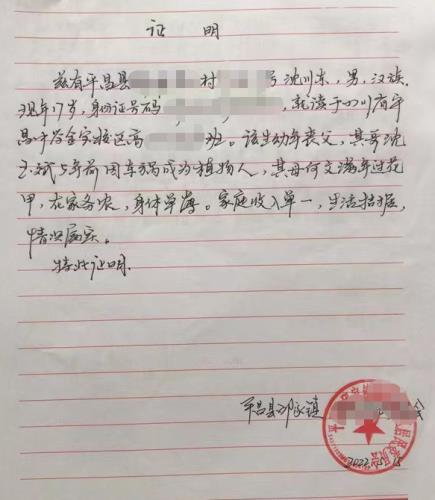 证 明
兹有平昌县 村 号沈川东，男，汉族，
现年17岁，身份证号码 ，就读于四川省平
昌中学金宝校区高 班。该生幼年丧父，其哥沈
玉斌5年前因车祸成为植物人，其母何文满年过花
甲，在家务农，身体单薄。家庭收入单一，生活拮据，
情况属实。
特此证明
平昌县 镇 会